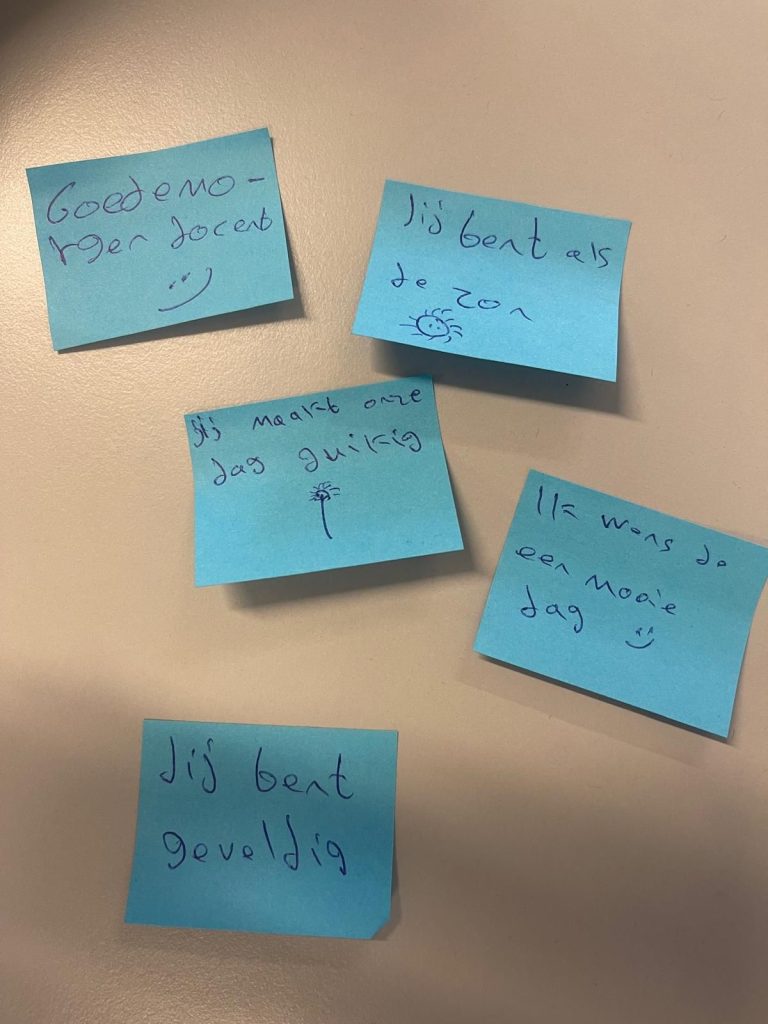 Goedemo-
rgen docent
Jij bent als
de zon
jij maakt onze
dag guikig
Ik wens je
een mooie
dag
Jij bent
geveldig